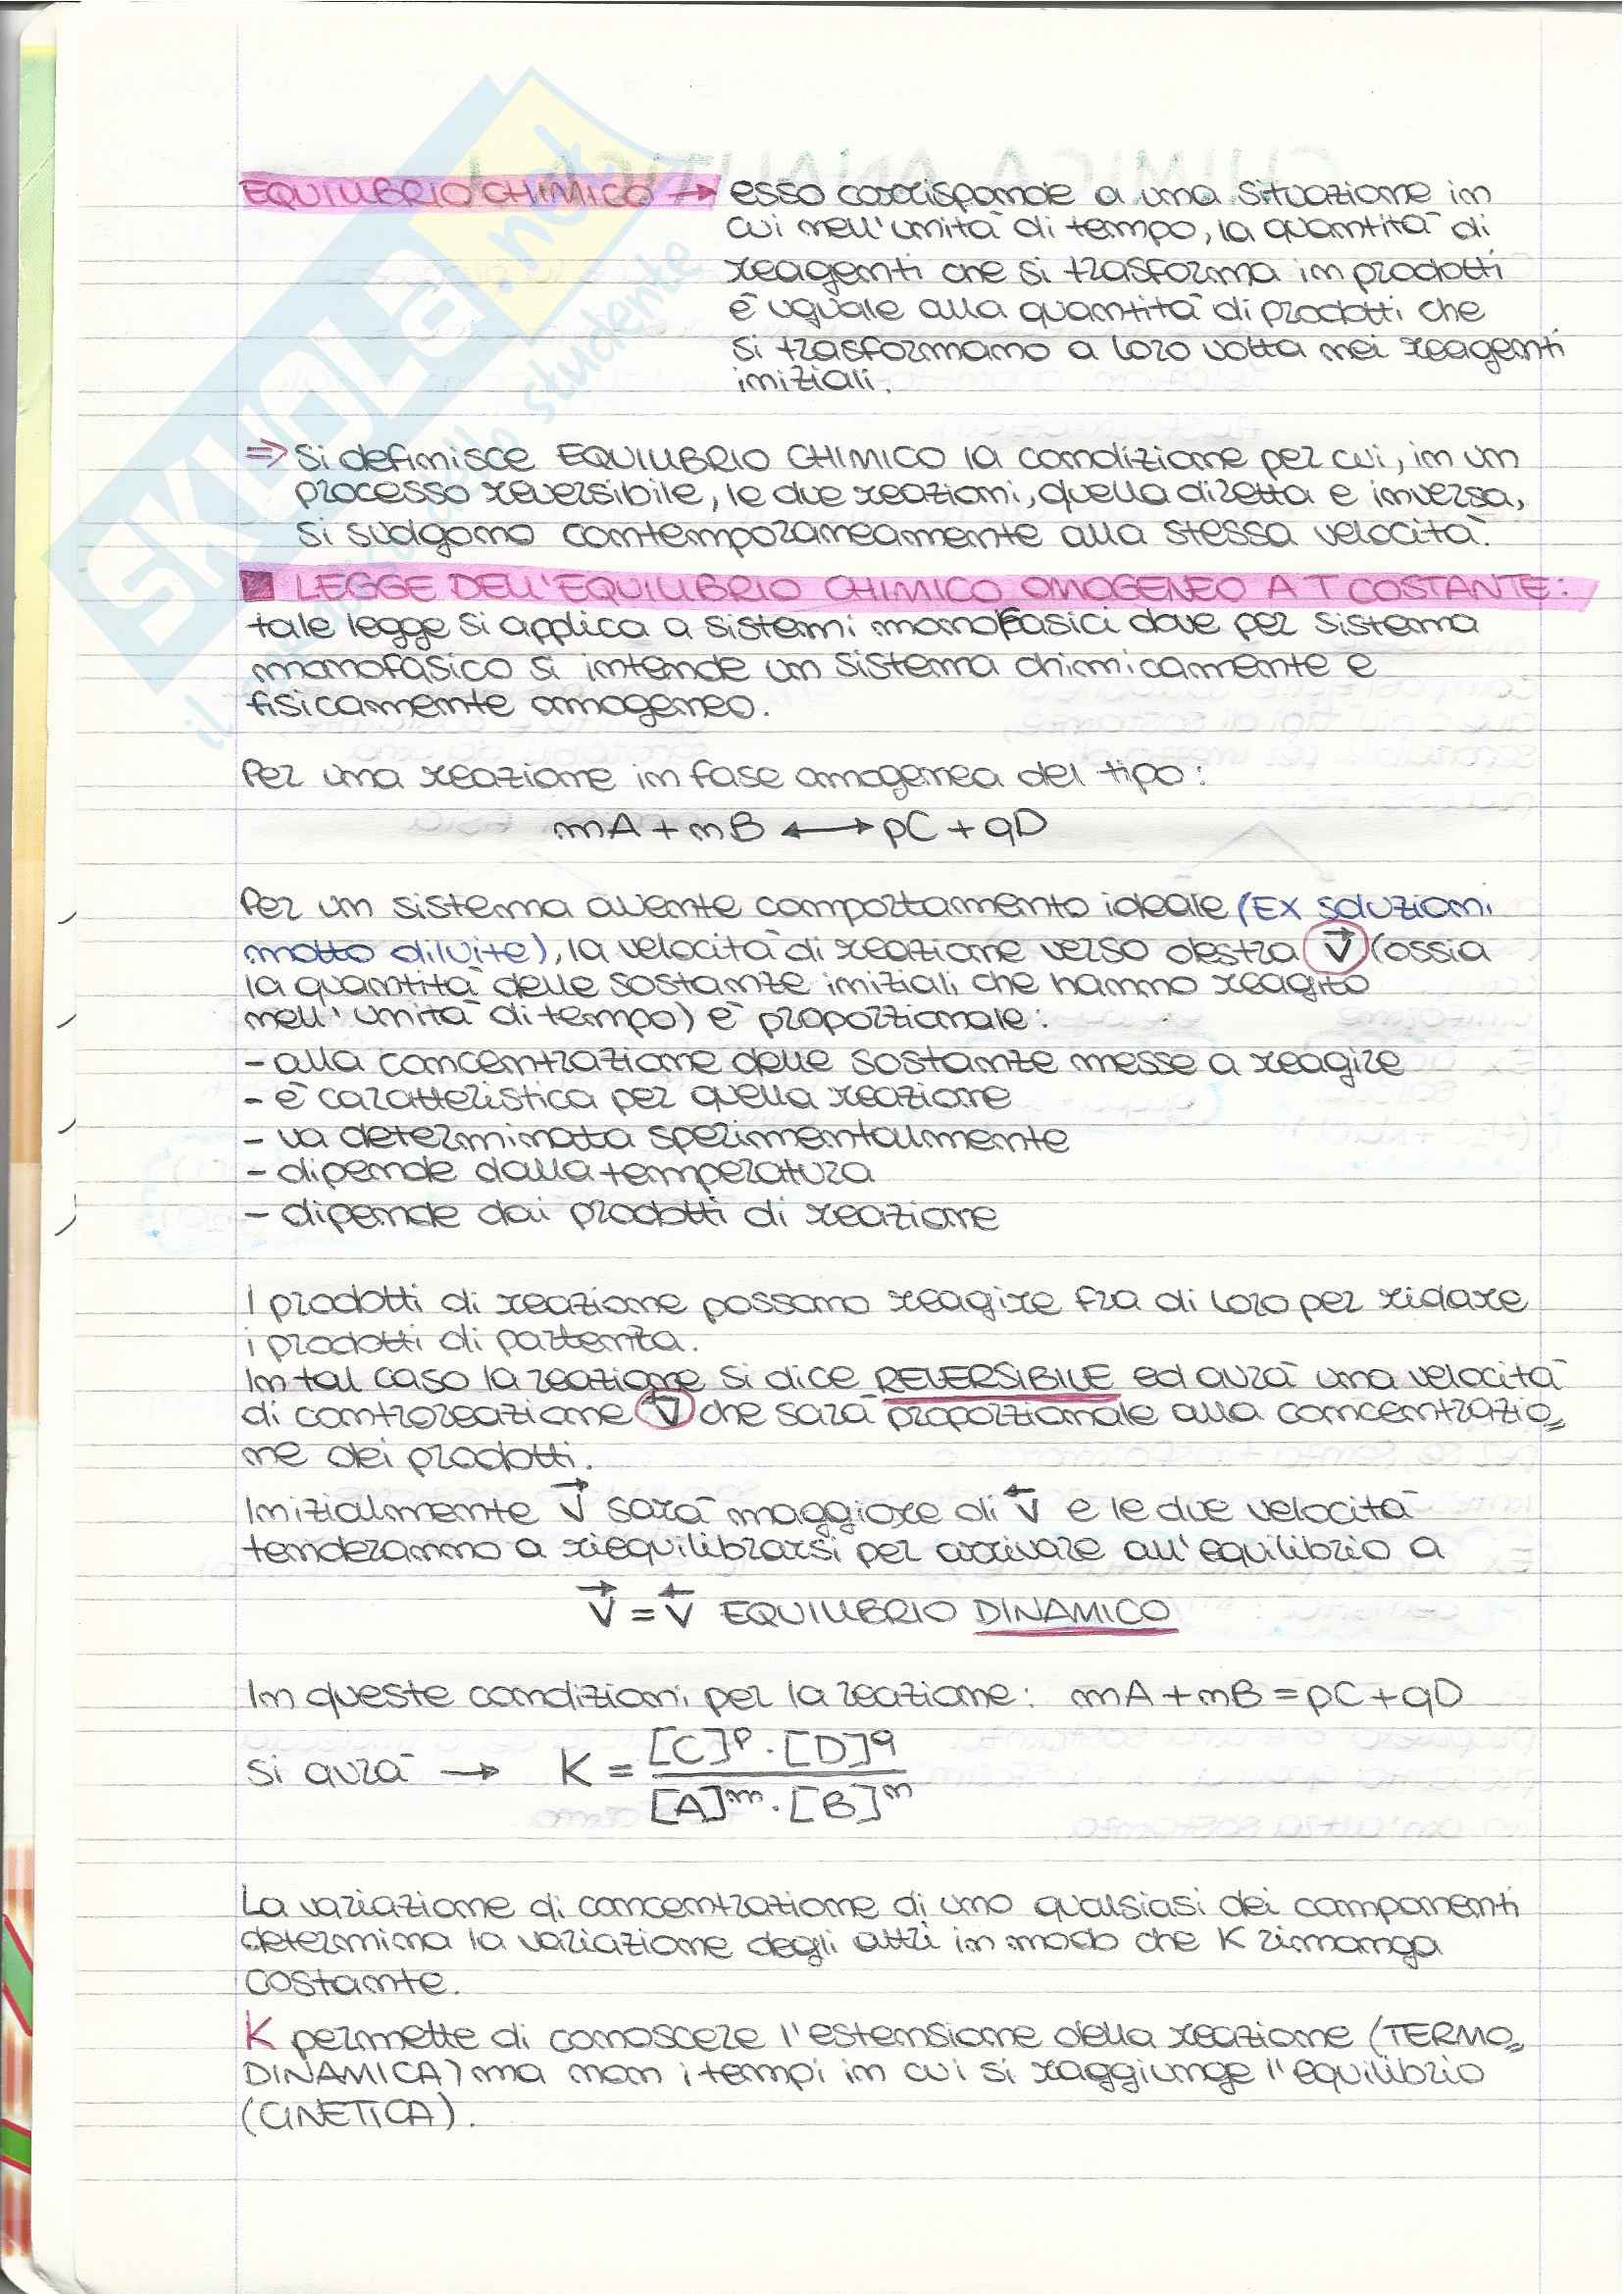 EQUILIBRIO CHIMICO → esso corrisponde a una situazione in
cui nell'unità di tempo, la quantità di
reagenti che si trasforma in prodotti
è uguale alla quantità di prodotti che
si trasformano a loro volta nei reagenti
iniziali.
⇒ Si definisce EQUILIBRIO CHIMICO la condizione per cui, in un
processo reversibile, le due reazioni, quella diretta e inversa,
si svolgono contemporaneamente alla stessa velocità.
■ LEGGE DELL'EQUILIBRIO CHIMICO OMOGENEO A T COSTANTE:
tale legge si applica a sistemi monofasici dove per sistema
monofasico si intende un sistema chimicamente e
fisicamente omogeneo.
Per una reazione in fase omogenea del tipo:
mA + nB ⟷ pC + qD
Per un sistema avente comportamento ideale (EX soluzioni
molto diluite), la velocità di reazione verso destra v⃗ (ossia
la quantità delle sostanze iniziali che hanno reagito
nell'unità di tempo) è proporzionale:
- alla concentrazione delle sostanze messe a reagire
- è caratteristica per quella reazione
- va determinata sperimentalmente
- dipende dalla temperatura
- dipende dai prodotti di reazione
I prodotti di reazione possono reagire fra di loro per ridare
i prodotti di partenza.
In tal caso la reazione si dice REVERSIBILE ed avrà una velocità
di controreazione v⃖ che sarà proporzionale alla concentrazio=
ne dei prodotti.
Inizialmente v⃗ sarà maggiore di v⃖ e le due velocità
tenderanno a riequilibrarsi per arrivare all'equilibrio a
v⃗ = v⃖ EQUILIBRIO DINAMICO
In queste condizioni per la reazione: mA + nB = pC + qD
si avrà → K = [C]^p · [D]^q / [A]^m · [B]^n
La variazione di concentrazione di uno qualsiasi dei componenti
determina la variazione degli altri in modo che K rimanga
costante.
K permette di conoscere l'estensione della reazione (TERMO=
DINAMICA) ma non i tempi in cui si raggiunge l'equilibrio
(CINETICA).
SKUOLA.net